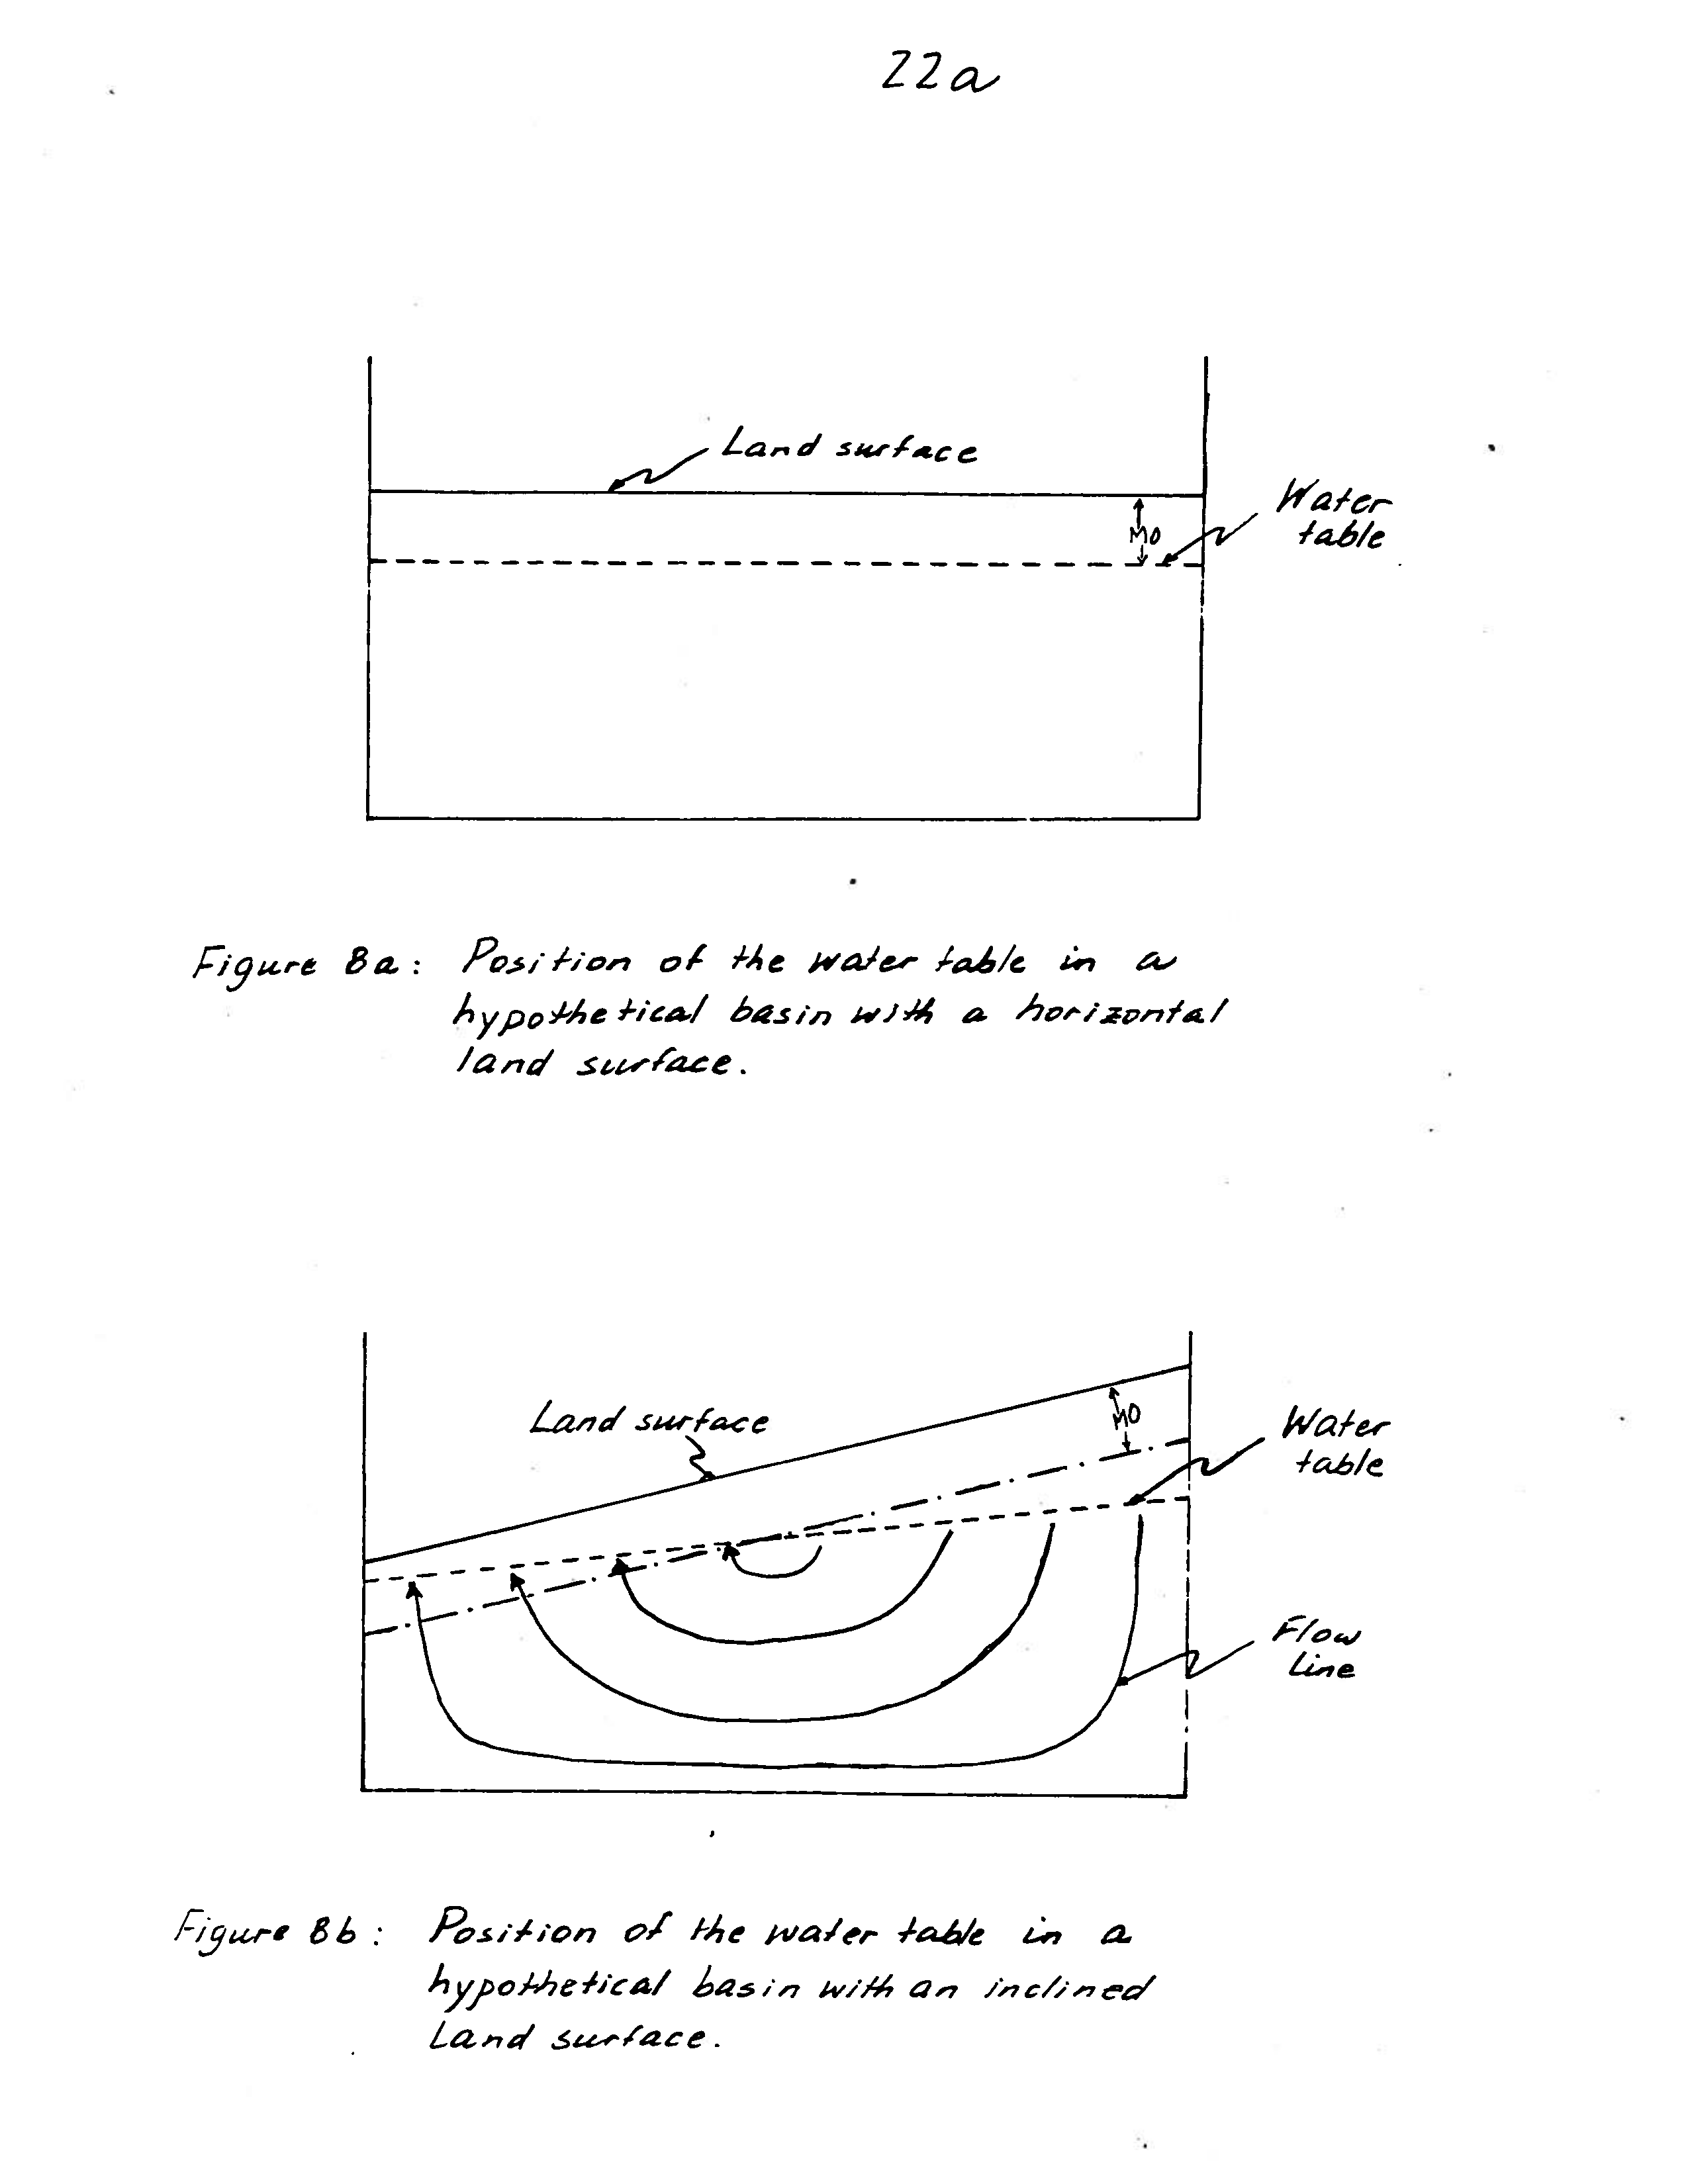 22a
Land surface
Water
table
MO
Figure 8a: Position of the water table in a
hypothetical basin with a horizontal
land surface.
Land surface
MO
Water
table
Flow
line
Figure 8b: Position of the water table in a
hypothetical basin with an inclined
Land surface.